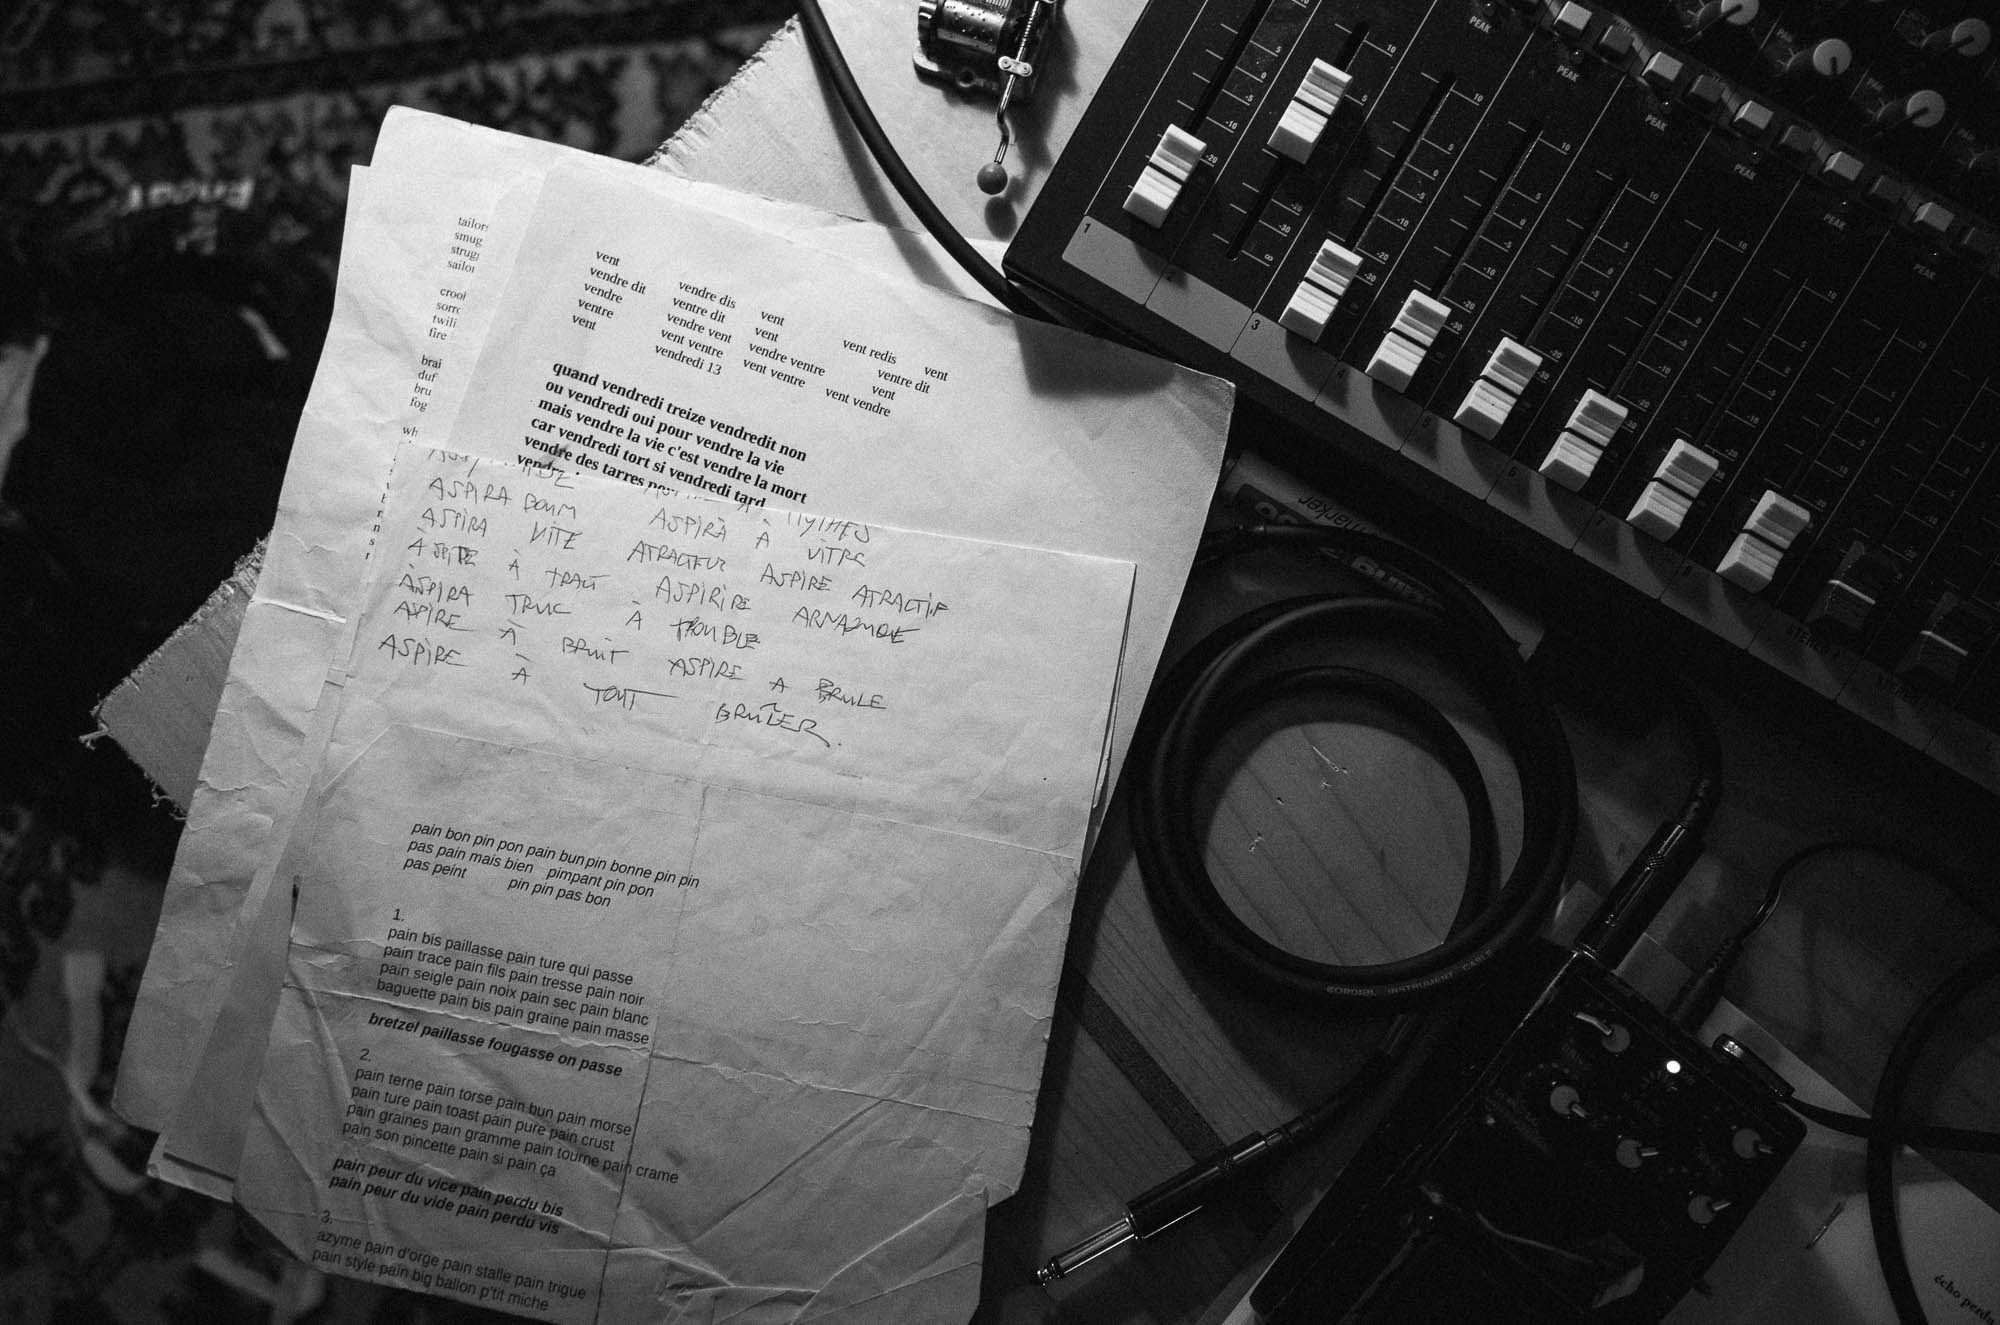 smug
brai
duf
bru
fog
vent
vendre dit
vendre
ventre
vent
vendre dis
ventre dit
vendre vent
vent ventre
vendredi 13
vent
vent
vendre ventre
vent ventre
vent redis
ventre dit
vent
vent vendre
vent
quand vendredi treize vendredit non
ou vendredi oui pour vendre la vie
mais vendre la vie c'est vendre la mort
car vendredi tort si vendredi tard
vendre des tarres
ASPIRA BOUM ASPIRA À MYTHES
ASPIRA VITE ATRACTEUR À VITRE
ASPIRE À TRACT ASPIRE ATRACTIF
ASPIRA TRUC À TROUBLE
ASPIRE À BRUIT ASPIRE A BRULE
ASPIRE À TOUT BRÛLER.
pain bon pin pon pain bun pin bonne pin pin
pas pain mais bien pimpant pin pon
pas peint pin pin pas bon
1.
pain bis paillasse pain ture qui passe
pain trace pain fils pain tresse pain noir
pain seigle pain noix pain sec pain blanc
baguette pain bis pain graine pain masse
bretzel paillasse fougasse on passe
2.
pain terne pain torse pain bun pain morse
pain ture pain toast pain pure pain crust
pain graines pain gramme pain tourne pain crame
pain son pincette pain si pain ça
pain peur du vice pain perdu bis
pain peur du vide pain perdu vis
3.
azyme pain d'orge pain stalle pain trigue
pain style pain big ballon p'tit miche
PEAK
PEAK
PEAK
PEAK
PEAK
PEAK
1
2
3
4
5
6
7
8
marker
CORDIAL INSTRUMENT CABLE
écho perdu